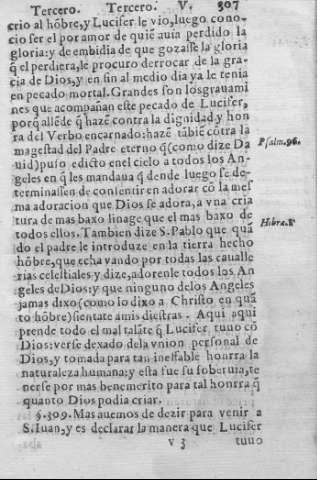 Tercero. Tercero. V. 307
crio al hõbre, y Lucifer le vio, luego cono-
cio ser el por amor de quiẽ auia perdido la
gloria: y de embidia de que gozasse la gloria
q̃ el perdiera, le procuro derrocar de la gra-
cia de Dios, y en fin al medio dia ya le tenia
en pecado mortal. Grandes son los grauami
nes que acompañan este pecado de Lucifer,
porq̃ allẽde q̃ hazẽ contra la dignidad y hon
ra del Verbo encarnado: hazẽ tãbiẽ cõtra la
magestad del Padre eterno q̃ (como dize Da
uid) puso edicto en el cielo a todos los An-
geles en q̃ les mandaua q̃ dende luego se de-
terminassen de consentir en adorar cõ la mes
ma adoracion que Dios se adora, a vna cria
tura de mas baxo linage que el mas baxo de
todos ellos. Tambien dize S. Pablo que quã
do el padre le introduze en la tierra hecho
hõbre, que echa vando por todas las caualle
rias celestiales y dize, adorenle todos los An
geles de Dios: y que ninguno de los Angeles
jamas dixo (como lo dixo a Christo en quã
to hõbre) sientate a mis diestras. Aqui aqui
prende todo el mal talãte q̃ Lucifer tuuo cõ
Dios: verse dexado de la vnion personal de
Dios, y tomada para tan ineffable honrra la
naturaleza humana: y esta fue su soberuia, te
nerse por mas benemerito para tal honrra q̃
quanto Dios podia criar.
§. 309. Mas auemos de dezir para venir a
S. Iuan, y es declarar la manera que Lucifer
V 3 tuuo
Psalm. 96.